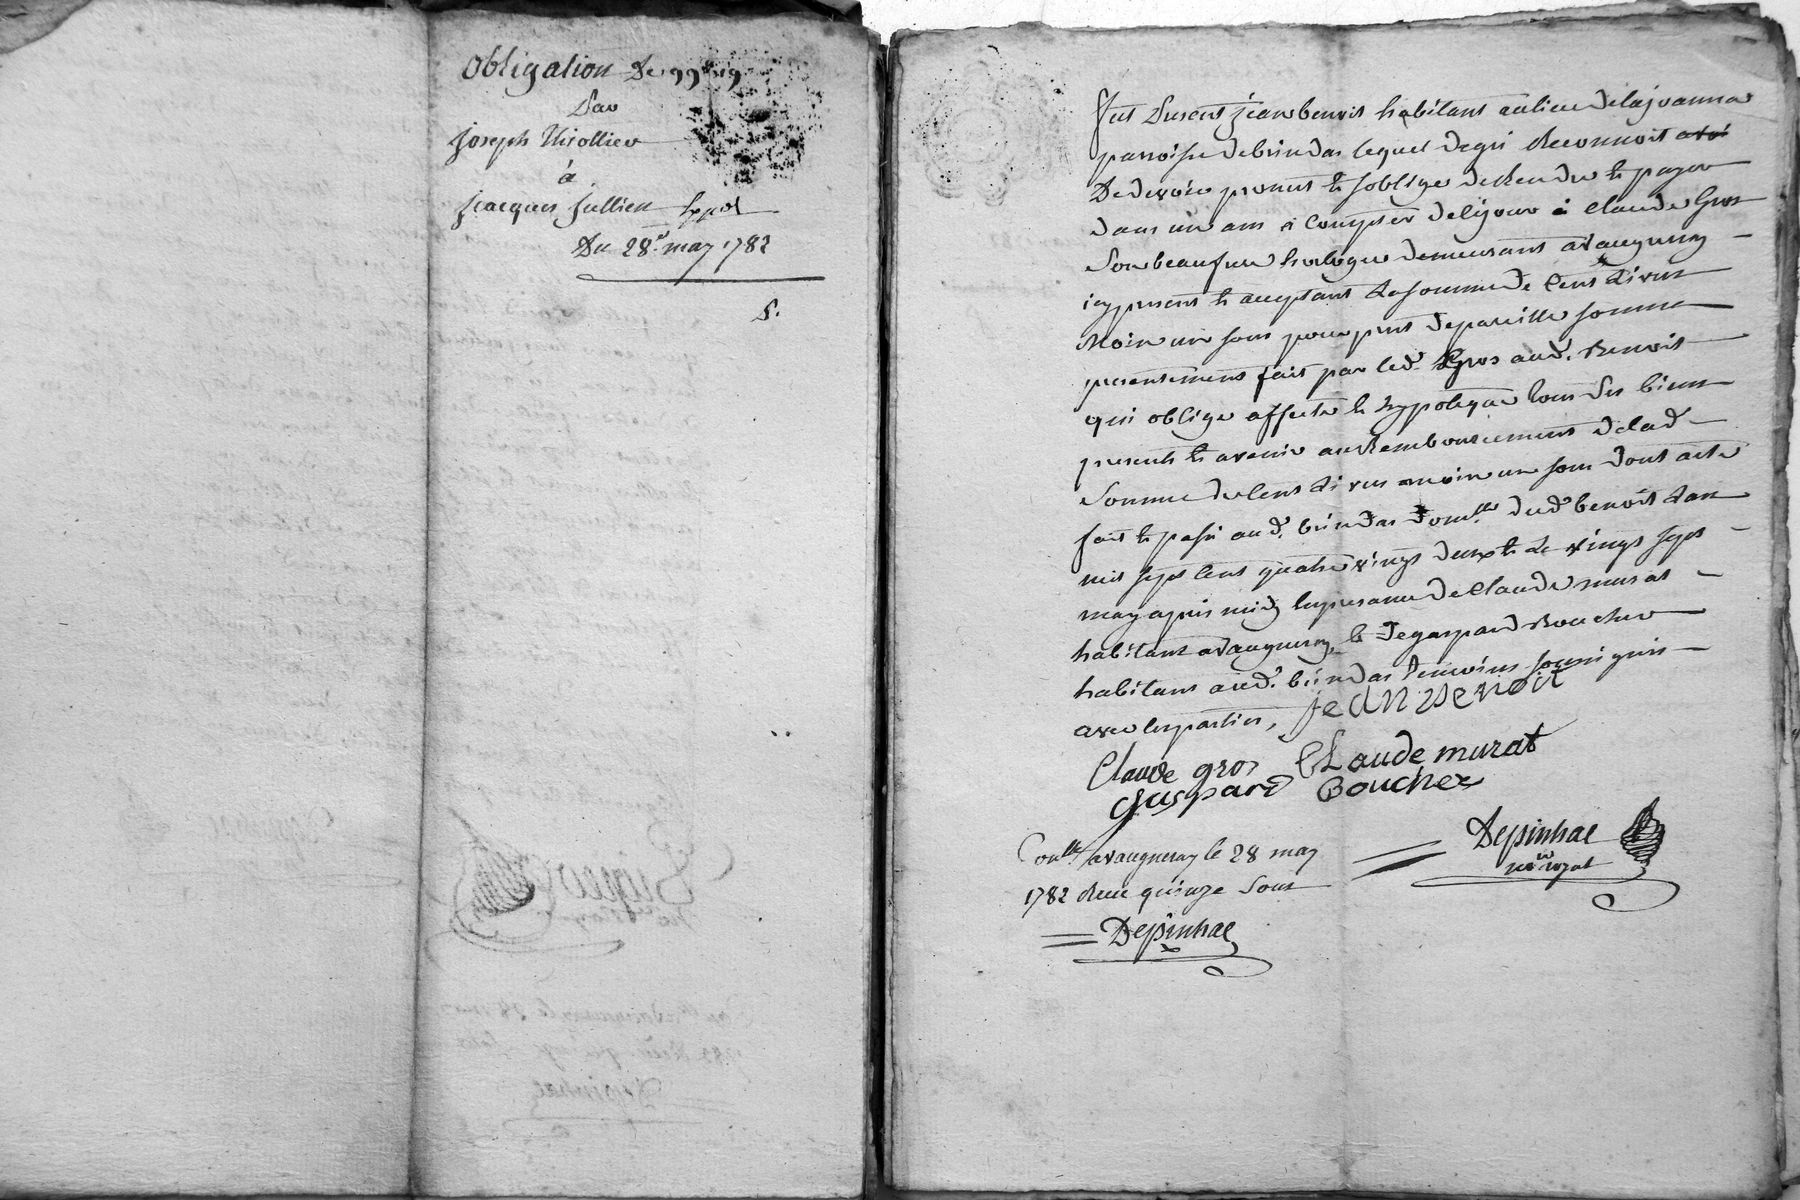 Obligation De 99# 19
Par
Joseph Nicollier
à
Jacques Jullien
Du 28e. may 1782
S.
fut present jean benoit habitant au lieu de lajoanna
parroisse de brindas lequel degré Reconnoit
De devoir promet et soblige de Rendre et payer
dans un ans a compter de cejour a claude Gros
Son beaufrere horloger demeurant avaugneray
icy present et acceptant la somme de Cent livres
Moin un sous pour pret de pareille somme
presentement fait par led. Gros aud. Benoit
qui oblige affecte et hypoteque tous ses biens
presents et avenir au Remboursement de lad.
Somme de Cent livres moin un sous dont acte
fait et passé aud. brindas domlle dud benoit Lan
mil sept Cent quatre vingt deux et Le vingt sept
may apres midy En presence de Claude murat
habitant avaugneray et de gaspard Boucher
habitant aud. brindas Temoins soussignés
avec les parties, jean Benoit
Claude gros Claude murat
Gaspard Boucher
Depinhac
nore. royal
Conllé avaugneray le 28 may
1782 Reçu quinze Sous
Depinhac